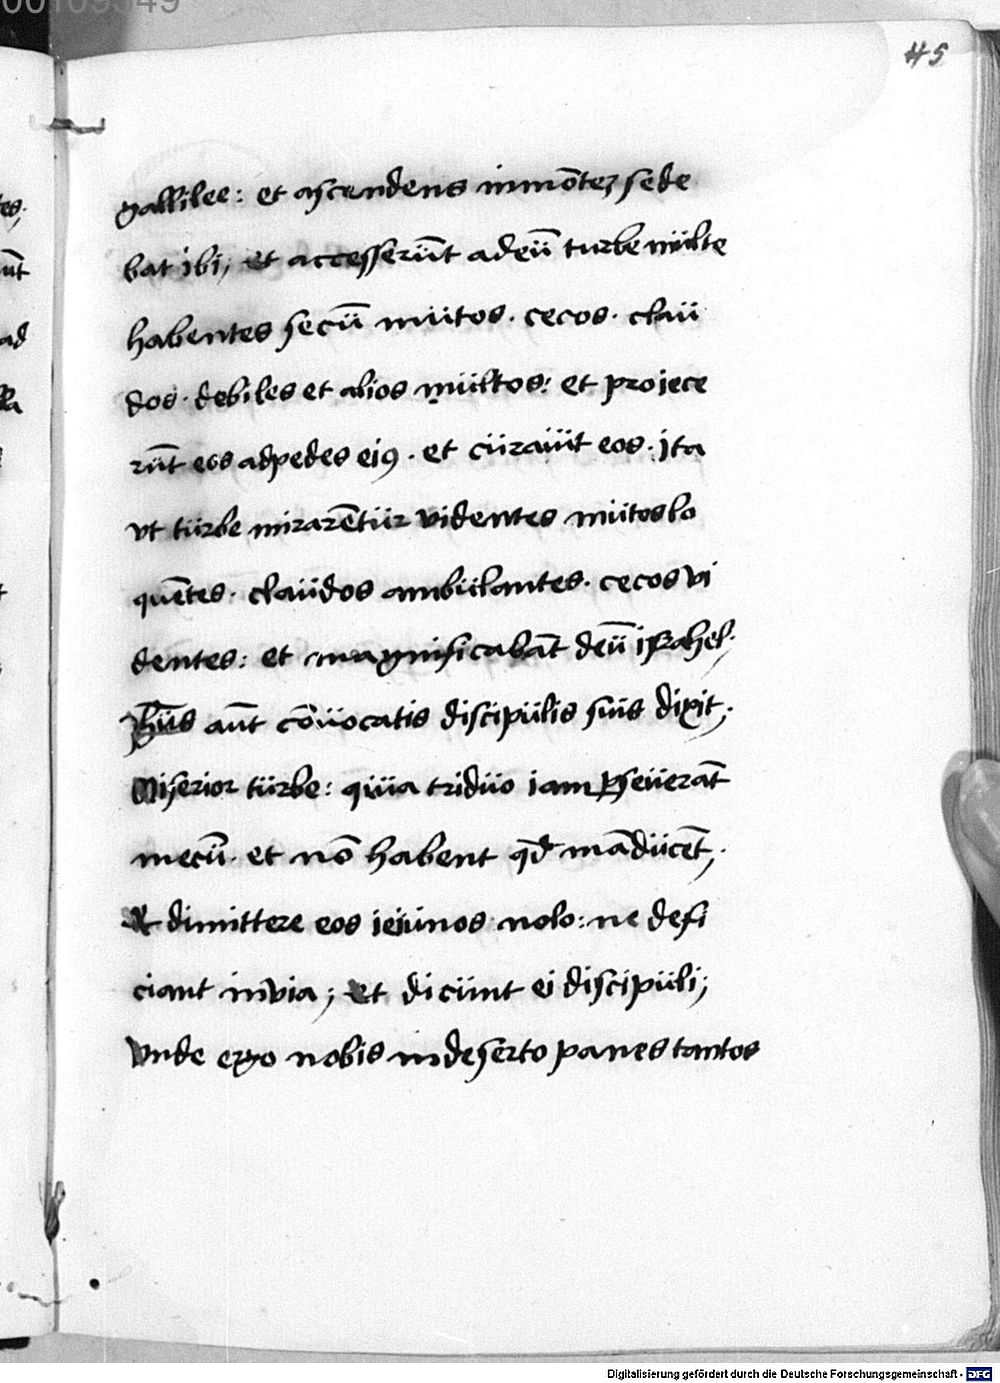 00109349
45
gallilee: et ascendens inmōtez sede
bat ibi; et accesserūt adeū turbe mülte
habentes secū mütos. cecos. claü
dos. debiles et alios mültos: et projece
rūt eos adpedes eiꝯ. et cüraüit eos. jta
vt türbe mirarētür videntes mütos lo
quētes. claüdos ambülantes. cecos vi
dentes: et magnificabāt deū israhel;
Jhūs aūt cōüocatis discipülis süis dixit;
Miserior türbe: qüia tridüo iam ꝑseüerāt
mecū. et nō habent qd̄ mādücēt;
Et dimittere eos ieiünos nolo: ne defi
ciant invia; et dicünt ei discipüli;
Vnde ergo nobis indeserto panes tantos
Digitalisierung gefördert durch die Deutsche Forschungsgemeinschaft - DFG